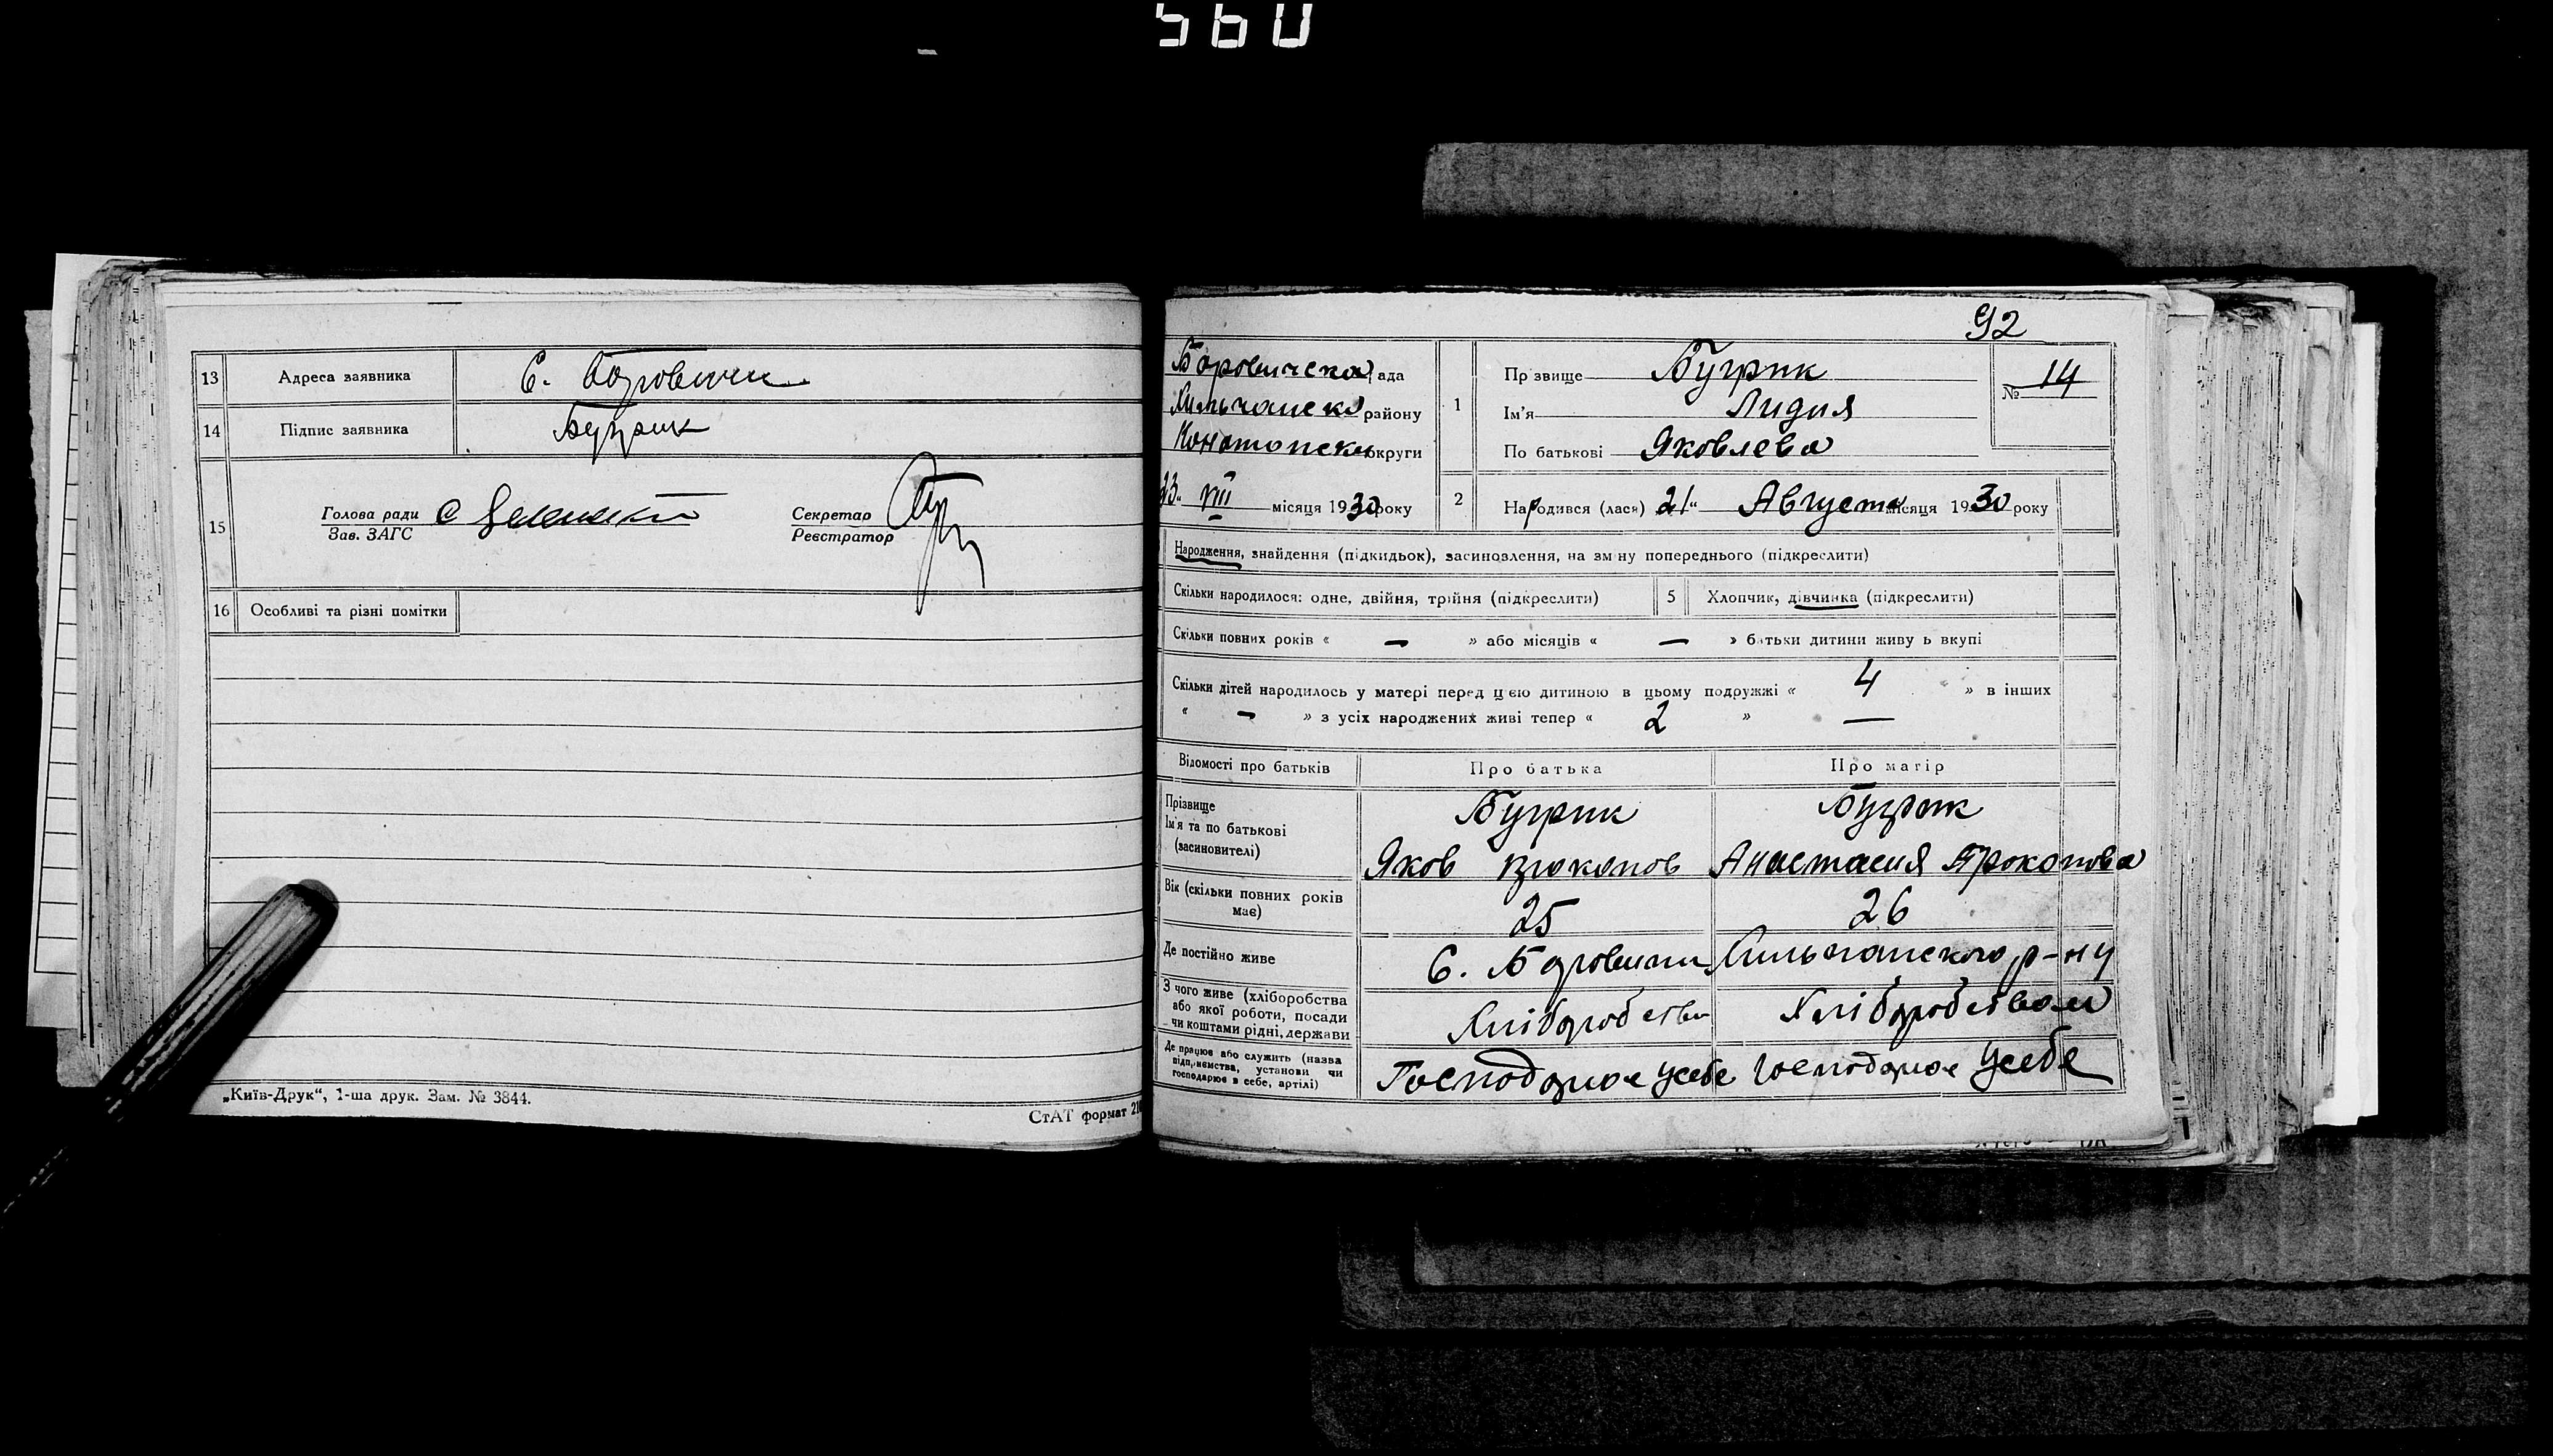 560
13 Адреса заявника С. Боровичи
14 Підпис заявника Бугрик
15 Голова ради
Зав. ЗАГС
Секретар
Реєстратор
16 Особливі та різні помітки
„Київ-Друк“, 1-ша друк. Зам. № 3844.
СтАТ формат 210
92
Боровичска рада
района
Конотопскы округи
23 VIII місяця 1930 року
1 Прізвище Бугрик
Ім'я Лидия
По батькові Яковлева
№ 14
2 Народився (лася) 21 “ Августа місяця 1930 року
Народження, знайдення (підкидьок), засиновлення, на зміну попереднього (підкреслити)
Скільки народилося: одне, двійня, трійня (підкреслити) 5 Хлопчик, дівчинка (підкреслити)
Скільки повних років « — » або місяців « — » батьки дитини живуть вкупі
Скільки дітей народилось у матері перед цією дитиною в цьому подружжі « 4 » в інших
« — » з усіх народжених живі тепер « 2 » —
Відомості про батьків Про батька Про матір
Прізвище Бугрик Бугрик
Ім'я та по батькові
(засиновителі) Яков Прокопов Анастасия Прокопова
Вік (скільки повних років
має) 25 26
Де постійно живе С. Боровичи р-ну
З чого живе (хліборобства
або якої роботи, посади
чи коштами рідні, держави Хліборобством Хліборобством
Де працює або служить (назва
підприємства, установи чи
господарює в себе, артілі) Господарює у себе Господарює у себе